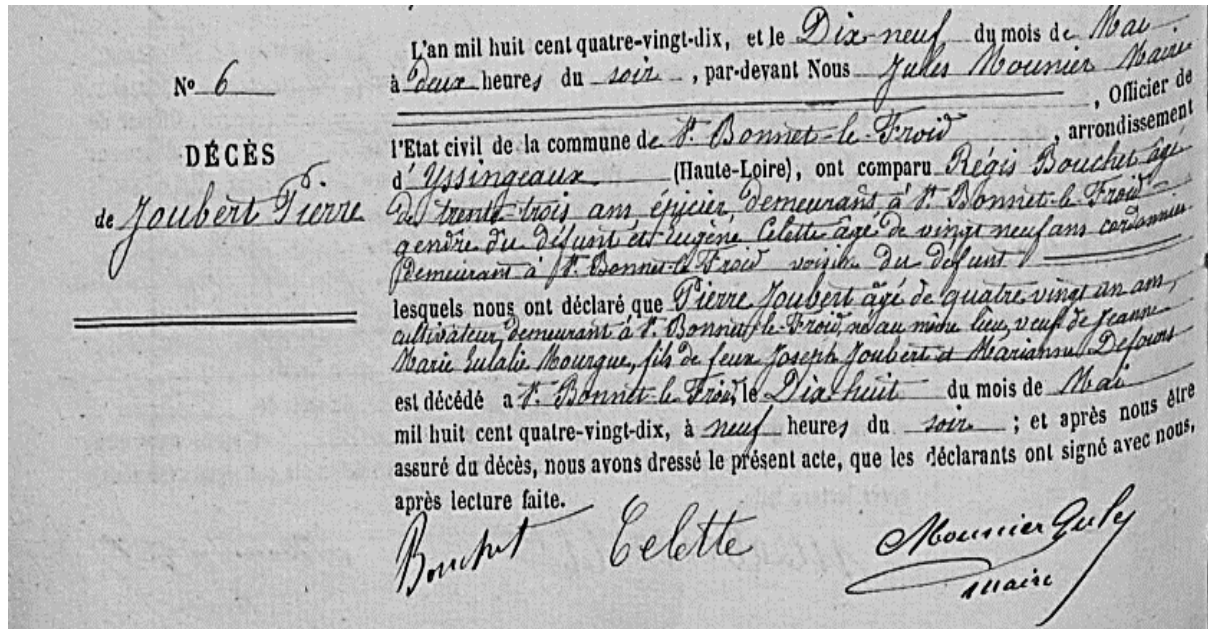 L'an mil huit cent quatre-vingt-dix, et le Dix-neuf du mois de Mai
à Deux heures du soir, par-devant Nous Jules Mounier Maire
, Officier de
l'Etat civil de la commune de St Bonnet-le-Froid, arrondissement
d'Yssingeaux (Haute-Loire), ont comparu Régis Bouchet âgé
de trente-trois ans, épicier, demeurant à St Bonnet-le-Froid
gendre du défunt et Eugène Celette âgé de vingt neuf ans cordonnier
demeurant à St Bonnet-le-Froid voisin du défunt
lesquels nous ont déclaré que Pierre Joubert âgé de quatre vingt un ans,
cultivateur, demeurant à St Bonnet-le-Froid, né au même lieu, veuf de Jeanne
Marie Eulalie Mourgue, fils de feux Joseph Joubert et Marianne Defours
est décédé a St Bonnet-le-Froid, le Dix huit du mois de Mai
mil huit cent quatre-vingt-dix, à neuf heures du soir ; et après nous être
assuré du décès, nous avons dressé le présent acte, que les déclarants ont signé avec nous,
après lecture faite.
Bouchet Celette Mounier Jules
maire
No 6
DÉCÈS
de Joubert Pierre